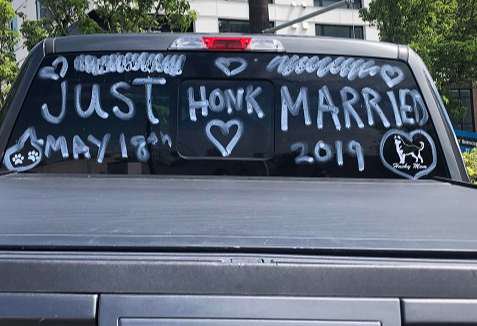 JUST HONK MARRIED
MAY 18th 2019
Husky Mom